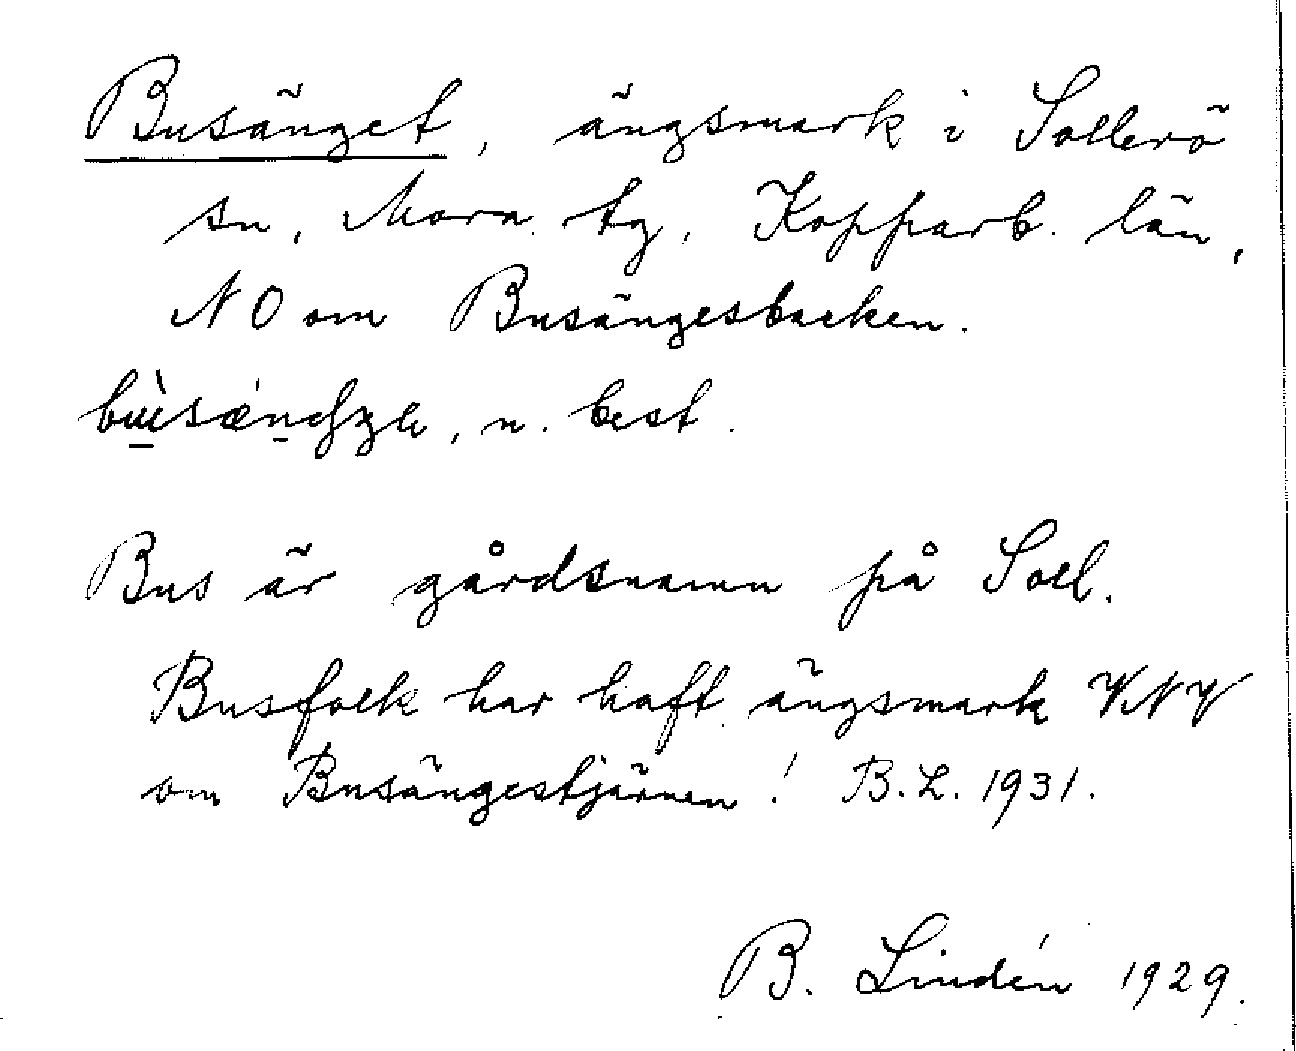 Busänget, ängsmark i Sollerö
sn, Mora tg, Kopparb. län,
NO om Busängesbacken.
n. best.
Bus är gårdsnamn på Soll.
Busfolk har haft ängsmark VNV
om Busängestjärnen! B.L. 1931.
B. Lindén 1929.